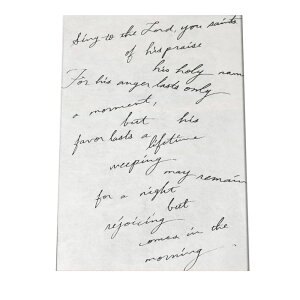 Sing to the Lord, you saints
of his praise
his holy nam
For his anger lasts only
a moment,
but his
favor lasts a lifetime
weeping
may remain
for a night
but
rejoicing
comes in the
morning.